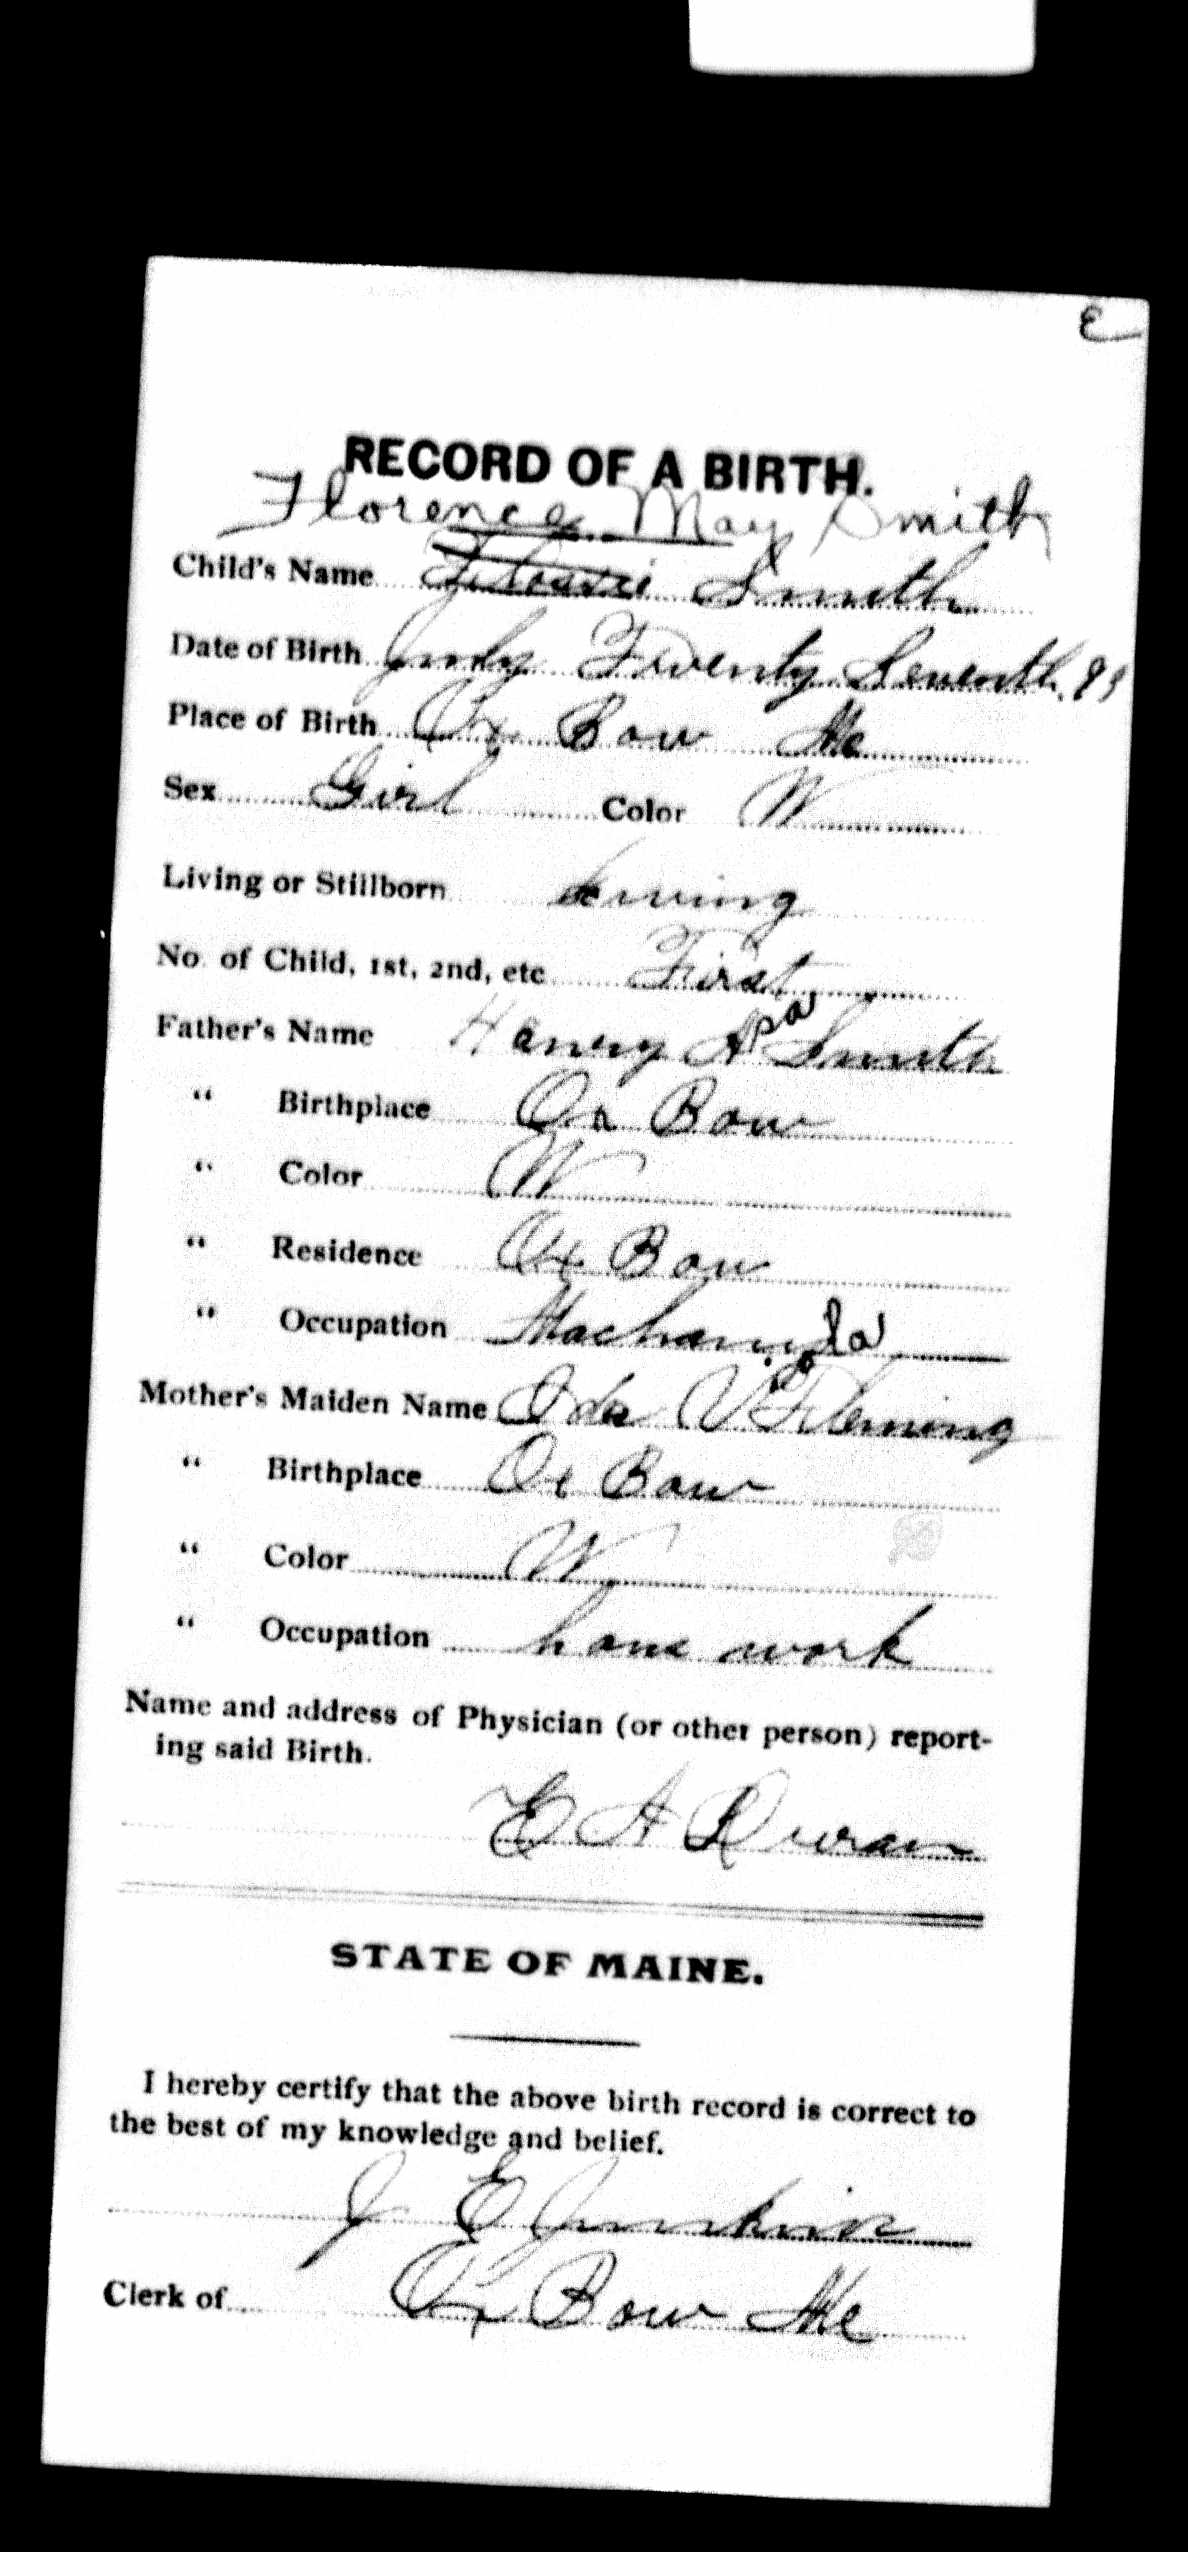 E
RECORD OF A BIRTH.
Florence May Smith
Child's Name Flossie Smith
Date of Birth July Twenty Seventh 99
Place of Birth Ox Bow Me
Sex Girl Color W
Living or Stillborn Living
No. of Child, 1st, 2nd, etc First
Father's Name Henry Asa Smith
" Birthplace Ox Bow
" Color W
" Residence Ox Bow
" Occupation
Mother's Maiden Name Ida V Fleming
" Birthplace Ox Bow
" Color W
" Occupation hous work
Name and address of Physician (or other person) report-
ing said Birth.
E A Duran
STATE OF MAINE.
I hereby certify that the above birth record is correct to
the best of my knowledge and belief.
J E Junkins
Clerk of Ox Bow Me